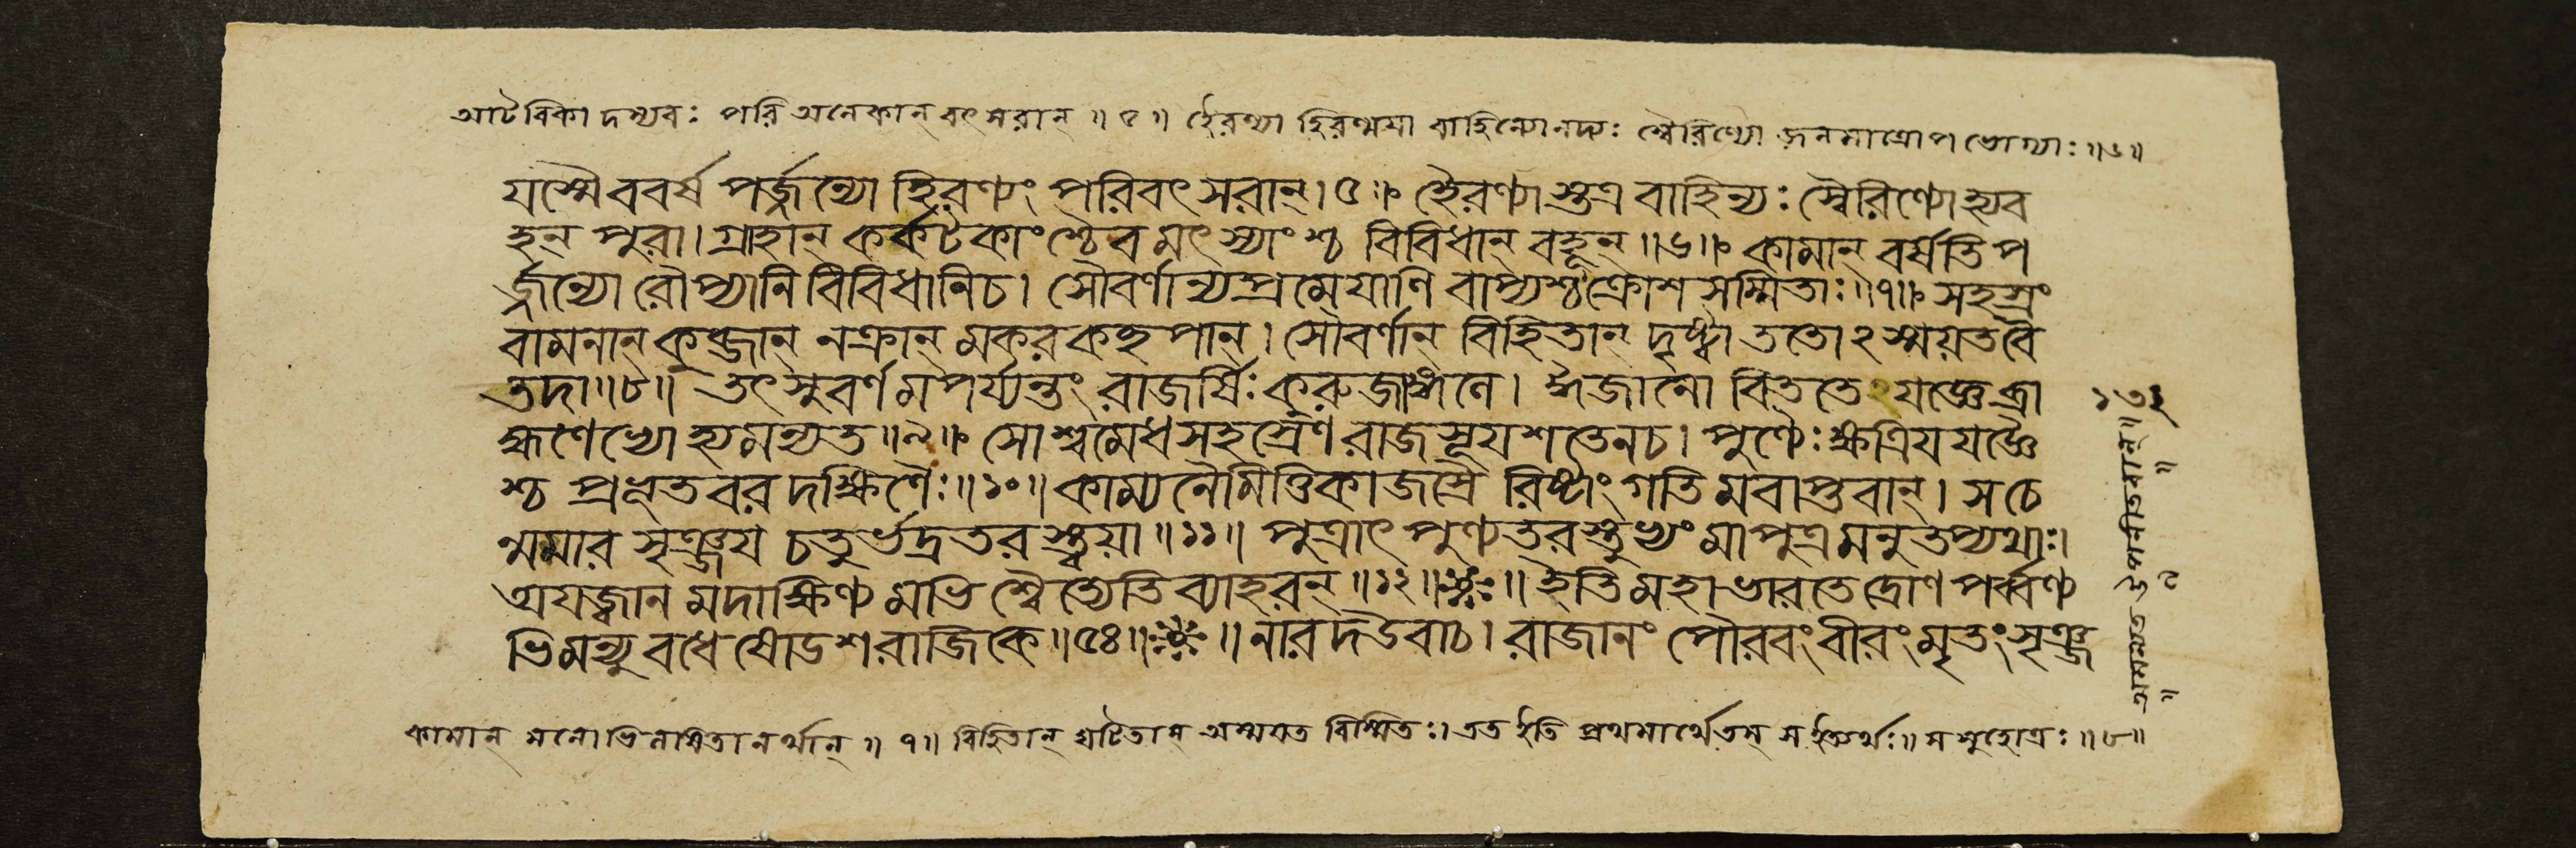 আটবিকা দস্যবঃ পরি অনেকান্ বৎসরান্ ॥ ৫ ॥ হৈরণ্যা হিরণ্ময়া বাহিন্যোনদ্যঃ স্বৈরিণ্যো জনমাত্রোপভোগ্যাঃ ॥ ৬ ॥
যস্মৈ ববর্ষ পর্জ্জন্যো হিরণ্যং পরিবৎসরান্। ৫ ॥ হৈরণ্যাস্তত্র বাহিন্যঃ স্বৈরিণ্যোহ্যব
হন্ পুরা। গ্রাহান্ কর্কটকাংশ্চৈব মৎস্যাংশ্চ বিবিধান্ বহূন্ ॥ ৬ ॥ কামান্ বর্ষতি প
র্জ্জন্যো রৌপ্যানি বিবিধানিচ। সৌবর্ণান্যপ্রমেযাণি বাপ্যশ্চক্রোশসম্মিতাঃ ॥ ৭ ॥ সহস্রং
বামনান্ কুব্জান্ নক্রান্ মকরকচ্ছপান্। সৌবর্ণান্ বিহিতান্ দৃষ্ট্বা ততোঽস্ময়তবৈ
তদা ॥ ৮ ॥ তৎ সুবর্ণমপর্য্যন্তং রাজর্ষিঃ কুরুজাঙ্গলে। ঈজানো বিততে যজ্ঞেব্রা
হ্মণেভ্যোহ্যমন্যত ॥ ৯ ॥ সোশ্বমেধসহস্রেণ রাজসূযশতেনচ। পুণ্যৈঃ ক্ষত্রিযযজ্ঞৈ
শ্চ প্রভূতবরদক্ষিণৈঃ ॥ ১০ ॥ কাম্যনৈমিত্তিকাজস্রৈ রিষ্টাং গতিমবাপ্তবান্। সচে
ন্মমার সৃঞ্জয চতুর্ভদ্রতরস্ত্বয়া ॥ ১১ ॥ পুত্রাৎ পুণ্যতরস্তুভ্যং মাপুত্রমনুতপ্যথাঃ।
অযজ্বানমদাক্ষিণ্যমভি শ্বৈত্যেতি ব্যাহরন্ ॥ ১২ ॥ ॥ ইতি মহাভারতে দ্রোণপর্ব্বণ্য
ভিমন্যুবধে ষোডশরাজিকে ॥ ৫৪ ॥ ॥ নারদউবাচ। রাজানং পৌরবং বীরং মৃতং সৃঞ্জ
কামান্ মনোভিলষিতানর্থান্ ॥ ৭ ॥ বিহিতান্ ঘটিতান্ অস্ময়ত বিস্মিতঃ। তত ইতি প্রথমার্থেতস্ স ইত্যর্থঃ ॥ স সুহোত্রঃ ॥ ৮ ॥
১৩২